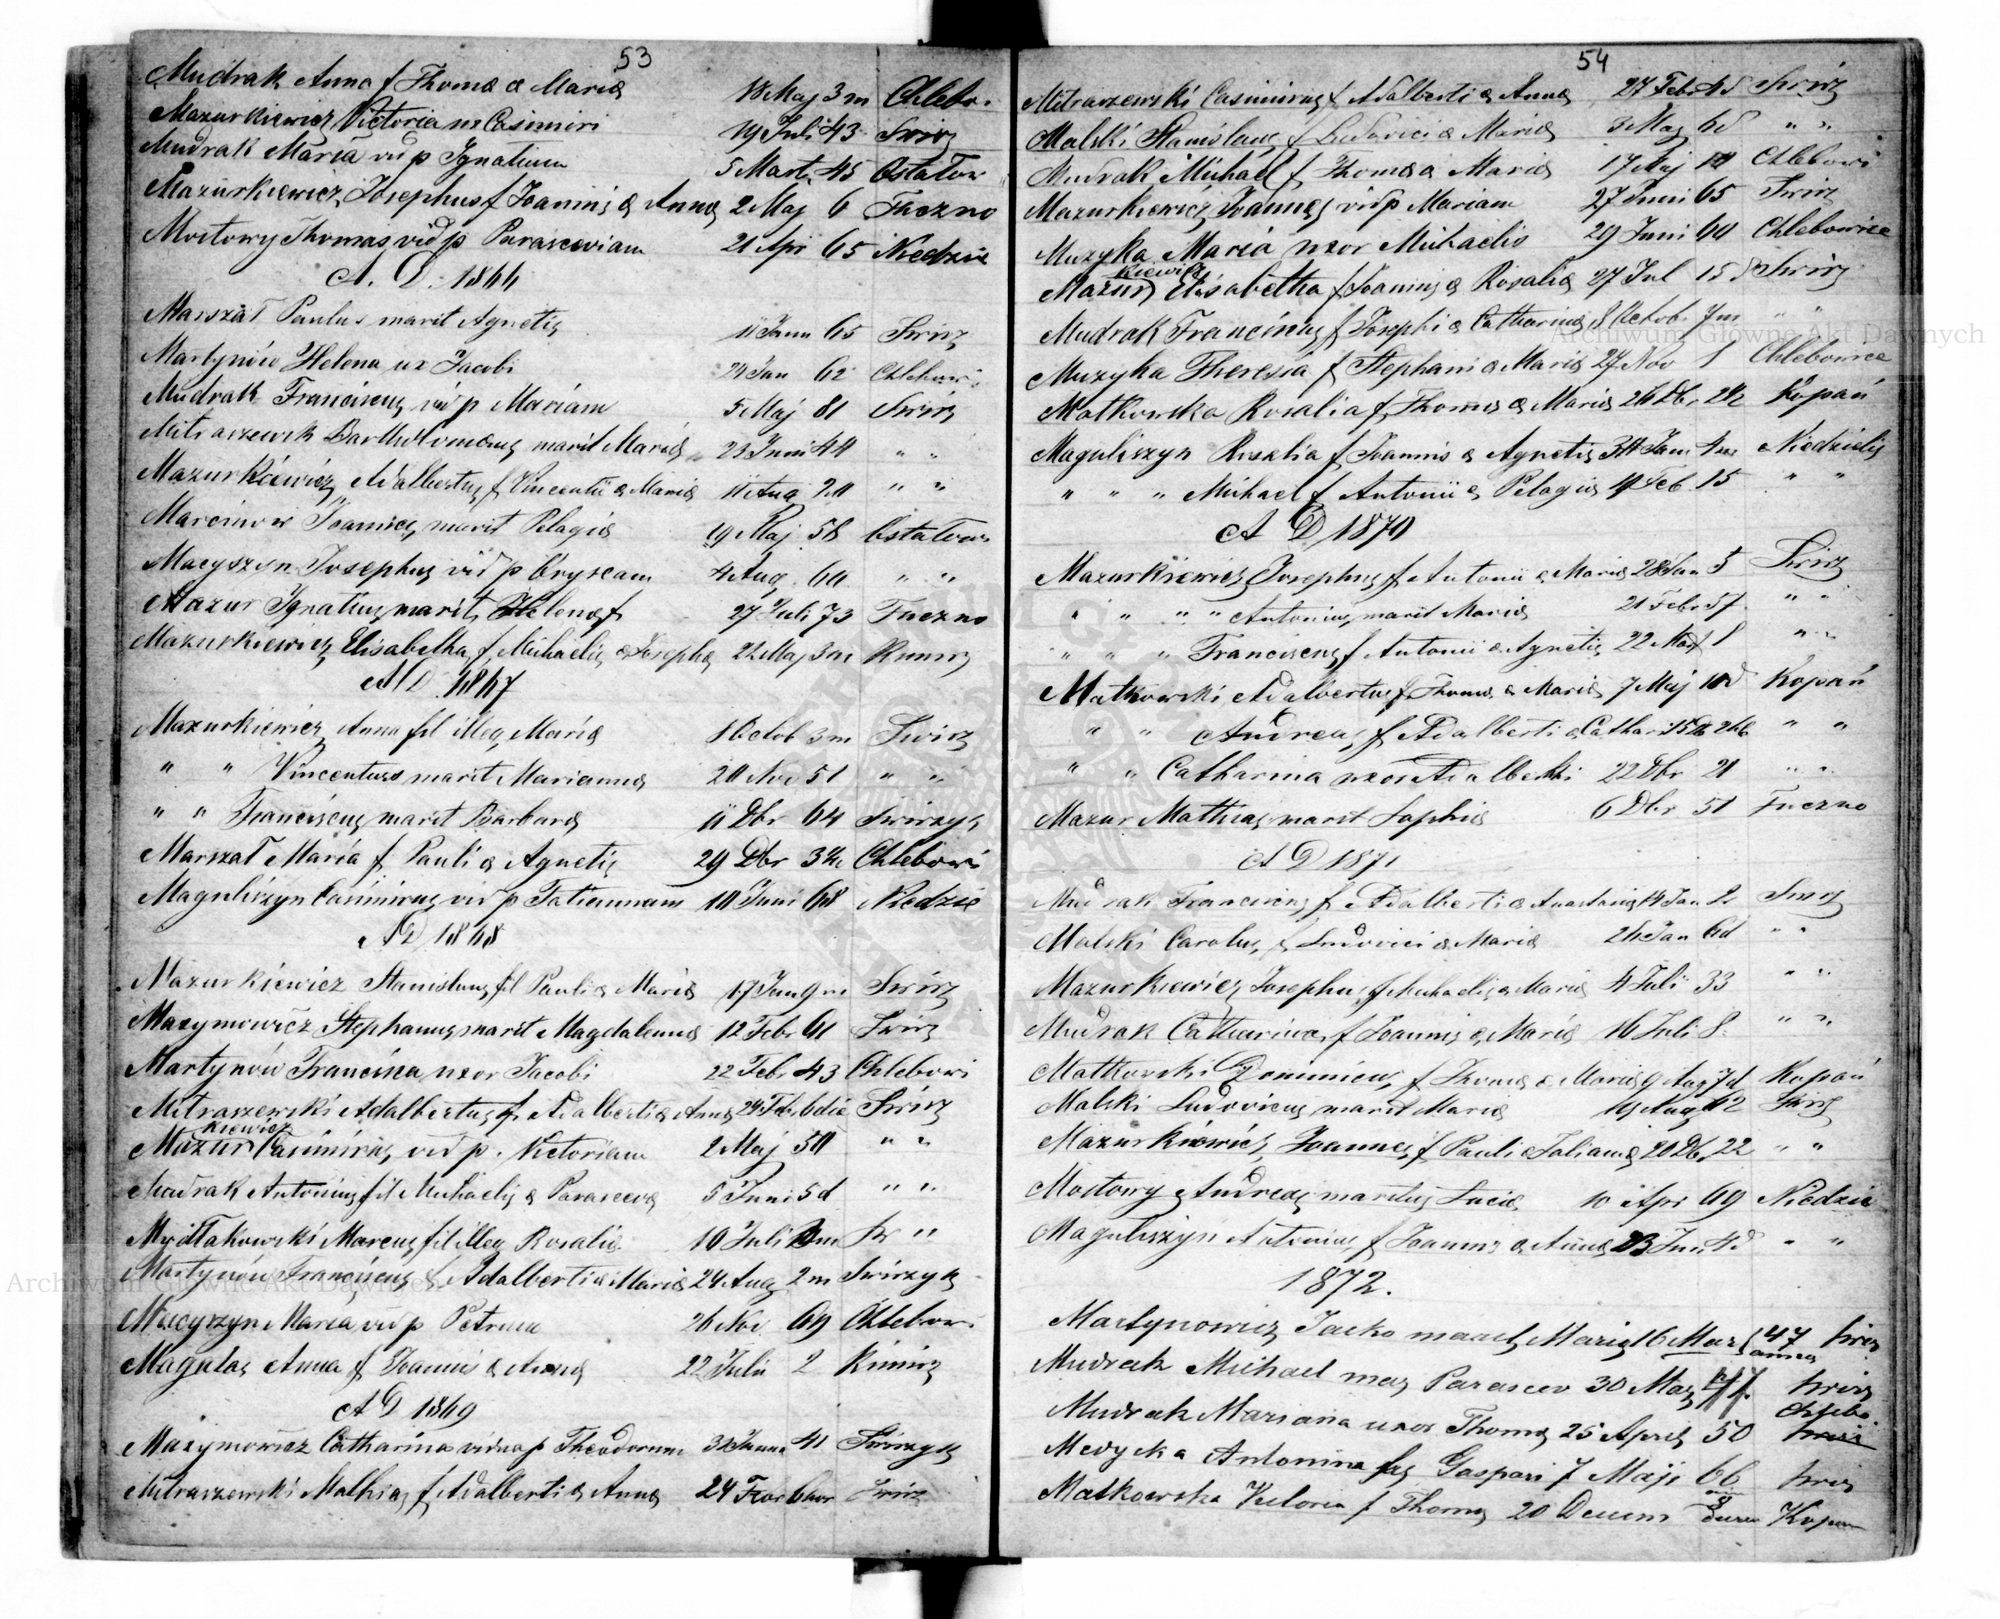 53
Mudrak Anna f Thomæ & Mariæ 18 Maj 3 m Chlebo.
Mazurkiewicz Victoria ux Casimiri 19 Juli 43 Swirz
Mudrak Maria vid p Ignatium 5 Mart. 45 Ostałow
Mazurkiewicz Josephus f Joannis & Annæ 2 Maj 6 Tuczno
Mostowy Thomas vid p Parasceviam 21 Apr 65 Niedzie
A. D. 1866
Marszał Paulus marit Agnetis 11 Janu 65 Swirz
Martynów Helena ux Jacobi 24 Jan 62 Chlebowi
Mudrak Franciscus vid p Mariam 5 Maj 81 Swirz
Mitraszewsk Bartholomæus marit Mariæ 23 Juni 44 " "
Mazurkiewicz Adalbertus f Vincentii & Mariæ 11 Aug 20 " "
Marcinow Joannes marit Pelagiæ 19 Maj 58 Ostałow
Macyszyn Josephus vid p Cryscam 4 Aug 60 " "
Mazur Ignatius marit Helenæ 27 Juli 73 Tuczno
Mazurkiewicz Elisabetha f Michaelis & Josephæ 22 Maj 3 m
A D. 1867
Mazurkiewicz Anna fil illeg Mariæ 1 Octob 3 m Swirz
" " Vincentius marit Mariannæ 20 Nov 51 " "
" " Franciscus marit Barbaræ 11 Dbr 64 Swirzyk
Marszał Maria f Pauli & Agnetis 29 Dbr Chlebowi
Maguliszyn Casimirus vid p Tatiannam 10 Juni 68 Niedzie
A D 1868
Mazurkiewicz Stanislaus fil Pauli & Mariæ 17 Jan 9 m Swirz
Maxymowicz Stephanus marit Magdalenæ 12 Febr 61 Swirz
Martynów Francisca uxor Jacobi 22 Febr 43 Chlebowi
Mitraszewski Adalbertus f Adalberti & Annæ 24 Feb 6 die Swirz
kiewicz
Mazur Casimirus vid p. Victoriam 2 Maj 50 " "
Mudrak Antonius fil Michaelis & Parascevæ 5 Juni 5 d " "
Mydłakowski Marcus fil illeg Rosaliæ 10 Juli "
Martynów Franciscus f Adalberti & Mariæ 24 Aug 2 m Swirzyk
Macyszyn Maria vid p Petrum 26 Nov 69 Chlebowi
Magalas Anna f Joannis & Annæ 22 Julii 2
A D 1869
Maxymowicz Catharina vidua p Theodorum 41 Swirzyk
Mitraszewski Mathias f Adalberti & Annæ 24 6 hor Swirz
Archiwum Główne Akt Dawnych
54
Mitraszewski Casimirus f Adalberti & Annæ 27 Feb Swirz
Malski Stanislaus f Ludovici & Mariæ 3 Maj 6 d " "
Mudrak Michael f Thomæ & Mariæ 17 Maj Chlebowi
Mazurkiewicz Joannes vid p Mariam 27 Juni 65 Swirz
Muzyka Maria uxor Michaelis 29 Juni 40 Chlebowice
kiewicz
Mazur Elisabetha f Joannis & Rosaliæ 27 Jul 15 d Swirz
Mudrak Franciscus f Josephi & Catharinæ 8 Octob. 7 m " "
Muzyka Theresia f Stephani & Mariæ 27 Nov 1 Chlebowice
Matkowska Rosalia f Thomæ & Mariæ 26 Dbr Kopań
Maguliszyn Rosalia f Joannis & Agnetis Jan 4 m Niedzielis
" " " Michael f Antonii & Pelagiæ Feb 15 " "
A D 1870
Mazurkiewicz Josephus f Antonii & Mariæ 28 Jan 5 Swirz
" " " " Antonius marit Mariæ 21 Febr 57 " "
" " " Franciscus f Antonii & Agnetis 22 Mart 1 " "
Matkowski Adalbertus f Thomæ & Mariæ 7 Maj 10 d Kopań
" " Andreas f Adalberti & Cathar " "
" " Catharina uxor Adalberti 22 Dbr 21 " "
Mazur Mathias marit Sophiæ 6 Dbr 51 Tuczno
A D 1871
Mudrak Franciscus f Adalberti & Anastasiæ 14 Jan 2 Swirz
Malski Carolus f Ludovici & Mariæ 26 Jan 6 d " "
Mazurkiewicz Josephus f Michaelis & Mariæ 4 Juli 33 " "
Mudrak Catharina f Joannis & Mariæ 16 Juli 8 " "
Matkowski Dominicus f Thomæ & Mariæ 9 Aug 7 d Kopań
Malski Ludovicus marit Mariæ 19 Aug 42 Swirz
Mazurkiewicz Joannes f Pauli & Julianæ 20 Dbr 22 " "
Mostowy Andreas maritus Luciæ 10 Apr 69 Niedzie
Maguliszyn Antonius f Joannis & Annæ 23 Jun 4 d " "
1872.
Martynowicz Jacko marit Mariæ 16 Mar 47 Swirz
annos
Mudrak Michael mar Parascev 30 Maj Swirz
Chlebo.
Mudrak Mariana uxor Thomæ 25 Aprilis 50
Medycka Antonina Gaspari 7 Maji 66 Swirz
Matkowska Victoria f Thomæ 20 Decem 8 Kopan
Archiwum Główne Akt Dawnych